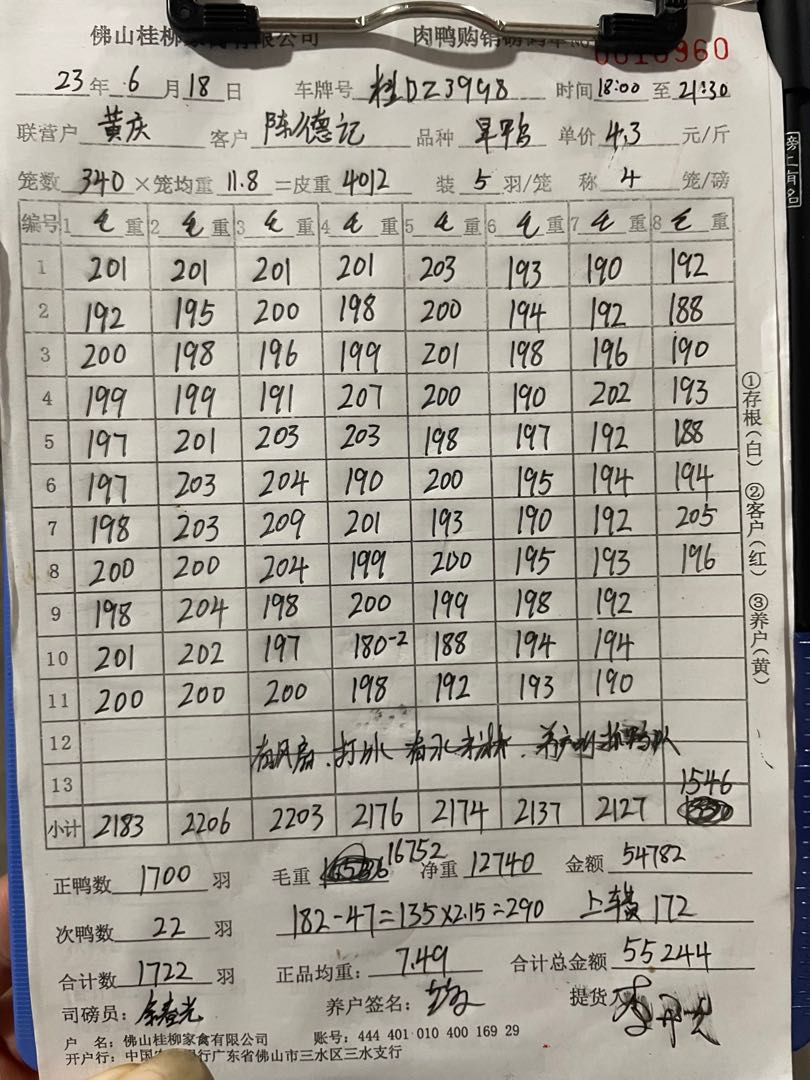 佛山桂柳家禽有限公司 肉鸭购销磅码单 0010960
23年6月18日 车牌号 桂DZ3998 时间18:00至21:30
联营户 黄庆 客户 陈德记 品种 旱鸭 单价 4.3 元/斤
笼数 340 ×笼均重 11.8 =皮重 4012 装 5 羽/笼 称 4 笼/磅
编号 1 毛 重 2 毛 重 3 毛 重 4 毛 重 5 毛 重 6 毛 重 7 毛 重 8 毛 重
1 201 201 201 201 203 193 190 192
2 192 195 200 198 200 194 192 188
3 200 198 196 199 201 198 196 190
4 199 199 191 207 200 190 202 193
5 197 201 203 203 198 197 192 188
6 197 203 204 190 200 195 194 194
7 198 203 209 201 193 190 192 205
8 200 200 204 199 200 195 193 196
9 198 204 198 200 199 198 192
10 201 202 197 180-2 188 194 194
11 200 200 200 198 192 193 190
12 有风扇、打水 有水
13 1546
小计 2183 2206 2203 2176 2174 2137 2127
正鸭数 1700 羽 毛重 16752 净重 12740 金额 54782
次鸭数 22 羽 182-47=135×2.15=290 上车费 172
合计数 1722 羽 正品均重: 7.49 合计总金额 55244
司磅员: 养户签名: 提货人
户 名: 佛山桂柳家禽有限公司 账号: 444 401 010 400 169 29
开户行: 中国农业银行广东省佛山市三水区三水支行
①存根(白) ②客户(红) ③养户(黄)
磅上有名